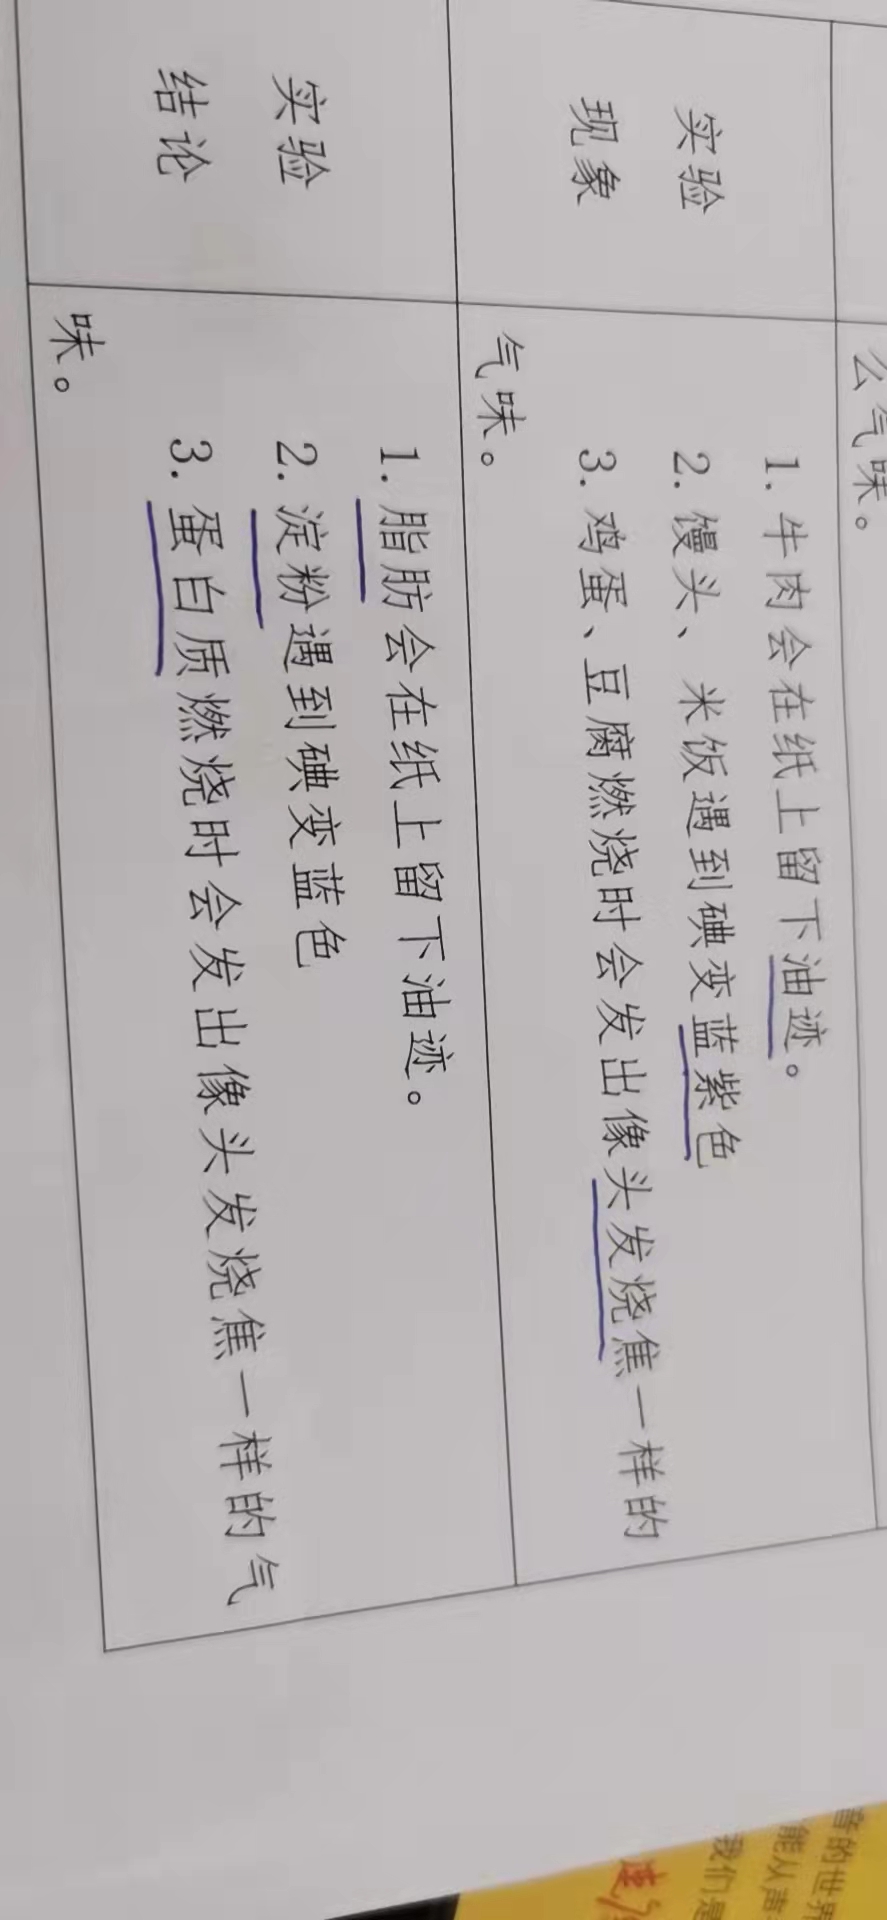 么气味。
实验
现象
1. 牛肉会在纸上留下油迹。
2. 馒头、米饭遇到碘变蓝紫色
3. 鸡蛋、豆腐燃烧时会发出像头发烧焦一样的
气味。
实验
结论
1. 脂肪会在纸上留下油迹。
2. 淀粉遇到碘变蓝色
3. 蛋白质燃烧时会发出像头发烧焦一样的气
味。
音的世界
能从声
我们是